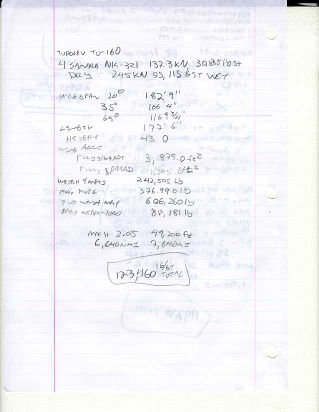 TUPOLEV TU-160
4 SAMARA NK-321 137.3KN 30,865 lb ST
DRY 245KN 55,115 ST WET
WINGSPAN 20° 182' 9"
35° 166' 4"
65° 116' 9 3/4"
LENGTH 177' 6"
HEIGHT 43 0
WING AREA
FULLY SWEPT 3,875.0 ft²
FULLY SPREAD ft²
WEIGHT EMPTY 242,505 lb
MAX FUEL 376,990 lb
T-O WEIGHT MAX 606,260 lb
MAX WEAPON LOAD 88,185 lb
MACH 2.05 49,200 ft
6,640 NMI 7,640 MI
123,460 lb ST TOTAL